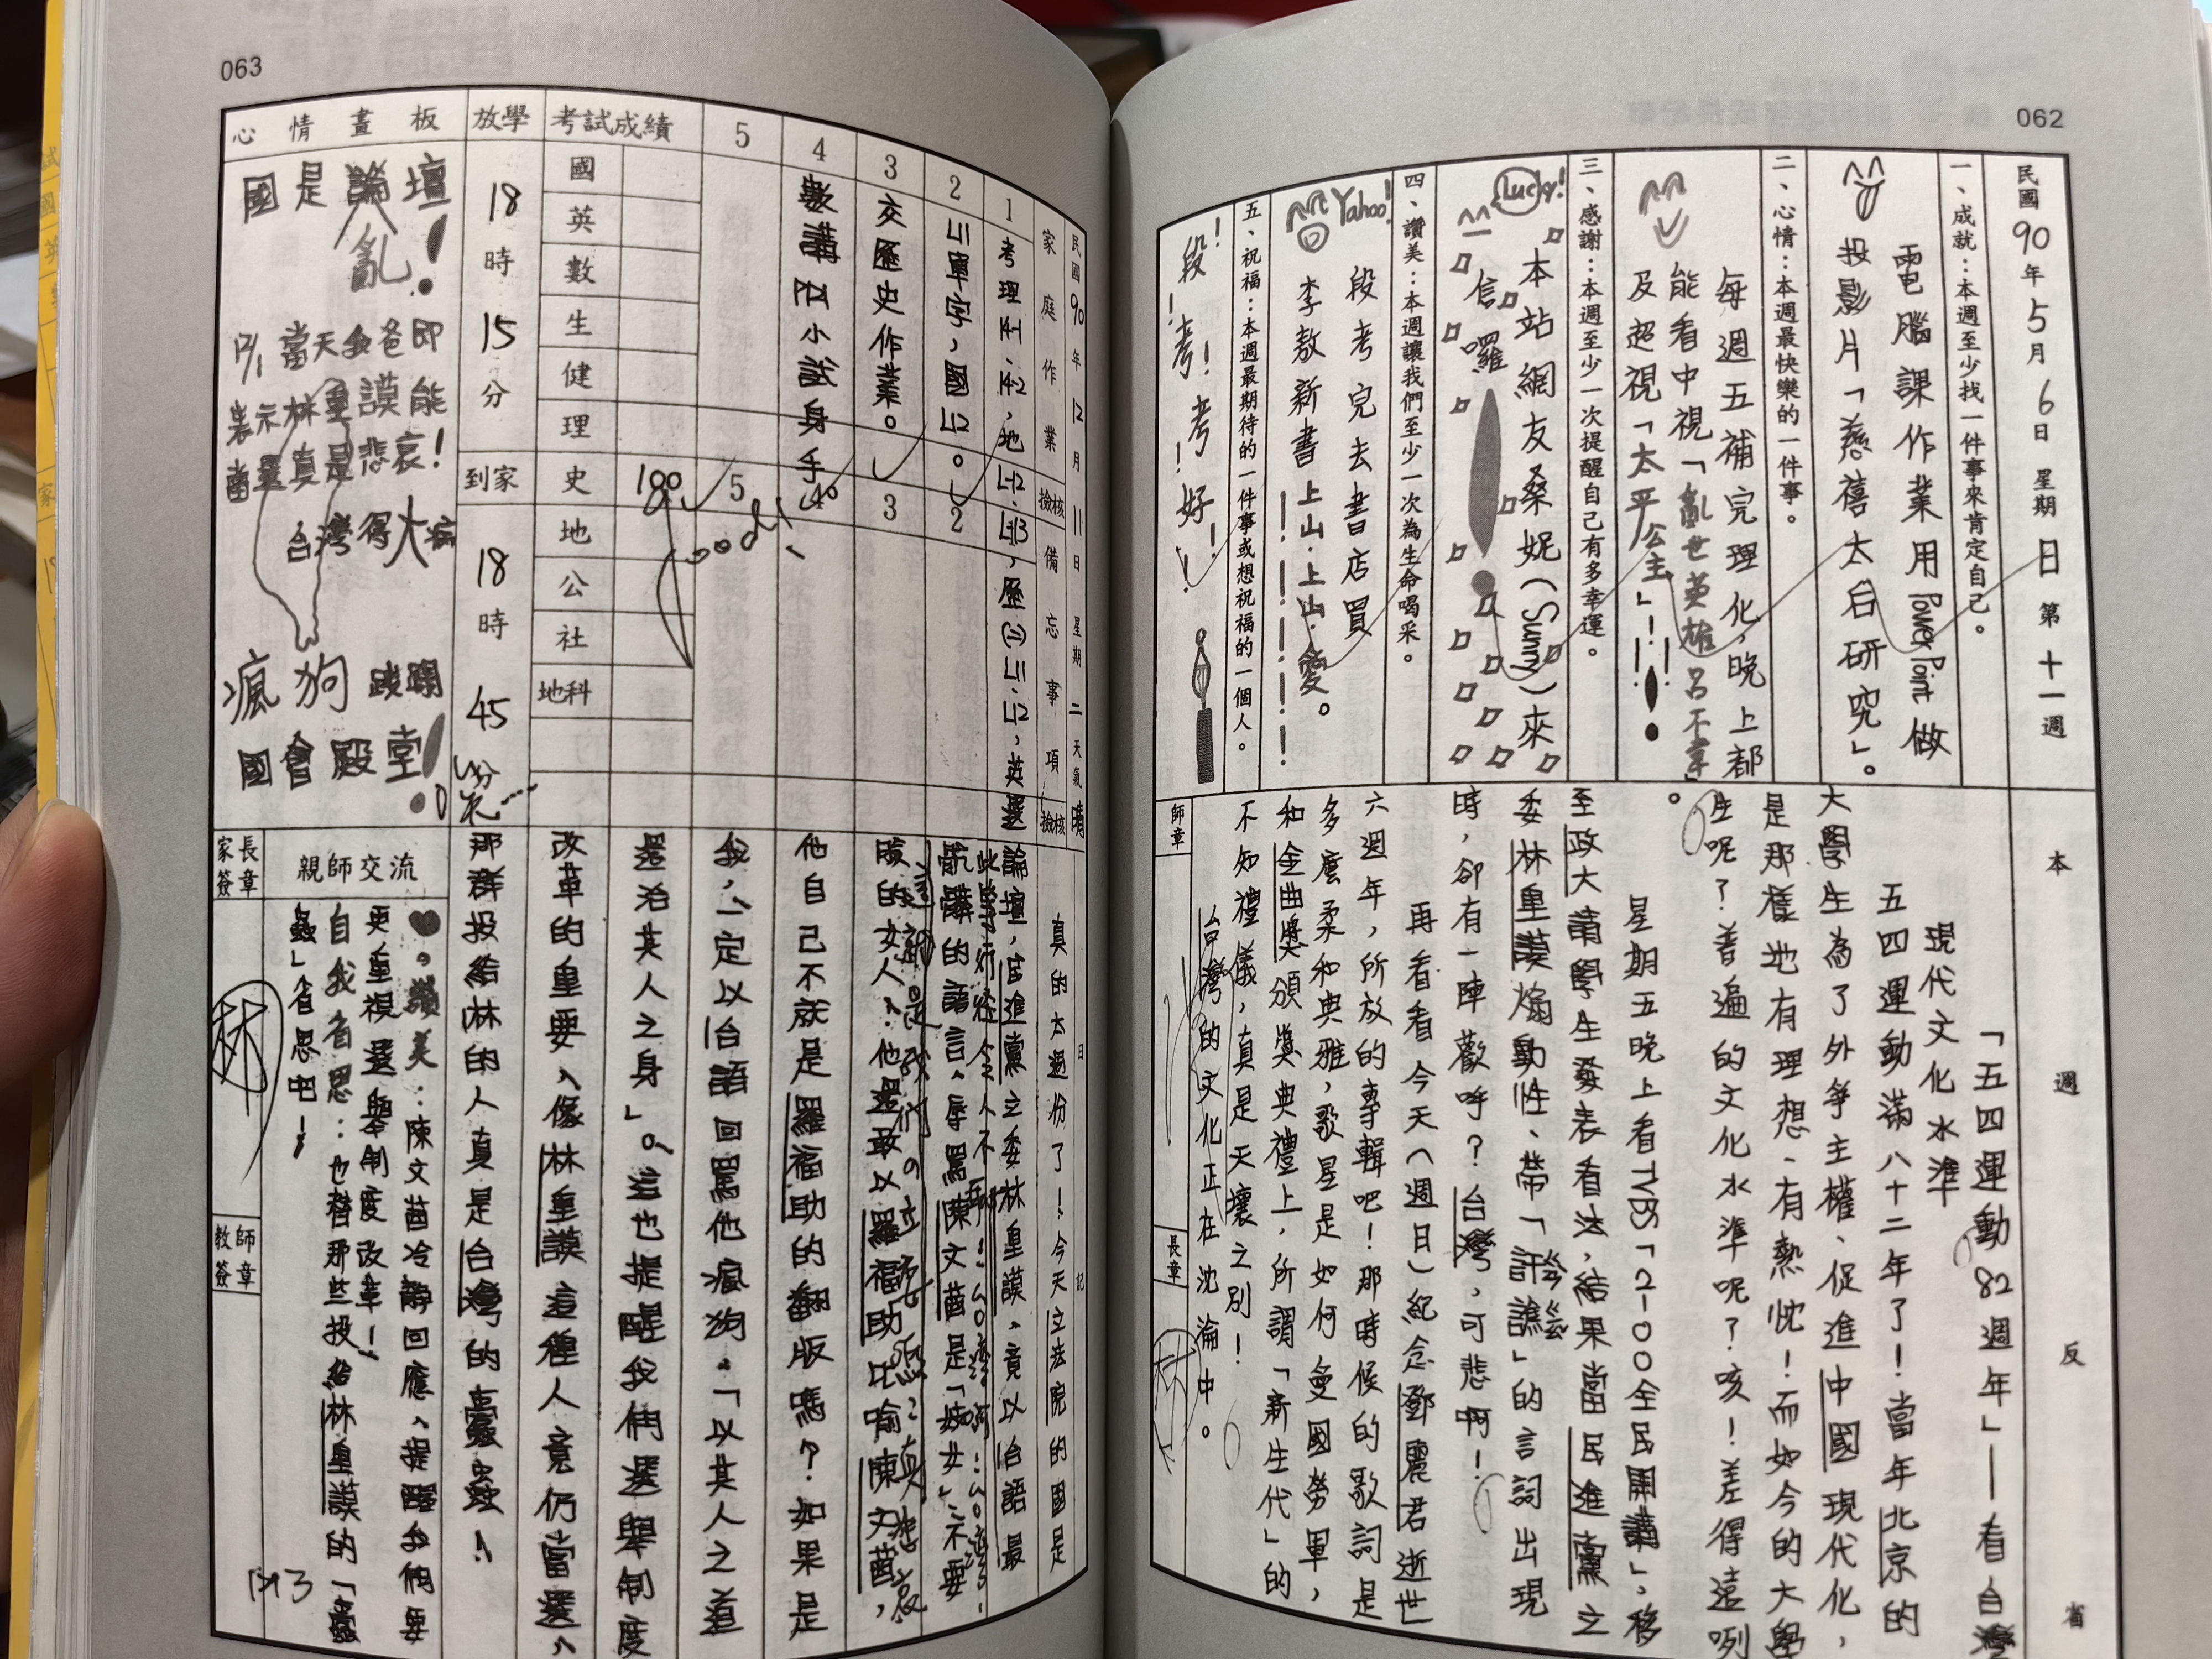 062
民國90年5月6日 星期日 第十一週
一、成就：本週至少找一件事來肯定自己。
電腦課作業用Power Point做
投影片「慈禧太后研究」。
二、心情：本週最快樂的一件事。
每週五補完理化，晚上都
能看中視「亂世英雄呂不韋」
及超視「太平公主」！！！
三、感謝：本週至少一次提醒自己有多幸運。
本站網友桑妮（Sunny）來
信囉！
Lucky!
四、讚美：本週讓我們至少一次為生命喝采。
段考完去書店買
李敖新書上山．上山．愛。
Yahoo!
五、祝福：本週最期待的一件事或想祝福的一個人。
段！考！考！好！
本週反省
「五四運動82週年」——看台灣
現代文化水準
五四運動滿八十二年了！當年北京的
大學生為了外爭主權、促進中國現代化，
是那樣地有理想、有熱忱！而如今的大學
生呢？普遍的文化水準呢？咳！差得遠咧
。
星期五晚上看TVBS「2-100全民開講」，移
至政大請學生發表看法，結果當民進黨之
委林重謨煽動性、帶「訐譙」的言詞出現
時，卻有一陣歡呼？台灣，可悲啊！
再看看今天（週日）紀念鄧麗君逝世
六週年，所放的專輯吧！那時候的歌詞是
多麼柔和典雅，歌星是如何曼國勞軍，
和金曲獎頒獎典禮上，所謂「新生代」的
不知禮儀，真是天壤之別！
台灣的文化正在沈淪中。
師章
長章
林
063
民國90年12月11日 星期二 天氣晴
家庭作業 檢核 備忘事項 檢核
1 考理14-1、14-2，地L12、L13，歷(二)L11、L12，英選
2 L11單字，國L12。
3 交歷史作業。
4 數講義小試身手
5
考試成績
國
英
數
生
健
理
史 100
地
公
社
地科
Good!
放學 18時15分
到家 18時45分
心情畫板
國是論壇！
亂！
當天金爸即
表示林重謨能
當選真是悲哀！
台灣得大病
瘋狗
國會殿堂！
日記
真的太過份了！今天立法院的國是
論壇，民進黨之委林重謨，竟以台語最
骯髒的語言、辱罵陳文茜是「妓女」、不要
臉的女人，他還敢以羅福助比喻陳文茜，
他自己不就是羅福助的翻版嗎？如果是
我，一定以台語回罵他瘋狗，「以其人之道
還治其人之身」。這也提醒我們選舉制度
改革的重要、像林重謨這種人竟仍當選、
那群投給林的人真是台灣的蠹蟲！
親師交流
讚美：陳文茜冷靜回應、提醒我們要
更重視選舉制度改革！
自我省思：也替那些投給林重謨的「蠹
蟲」省思吧！
家長簽章
林
教師簽章